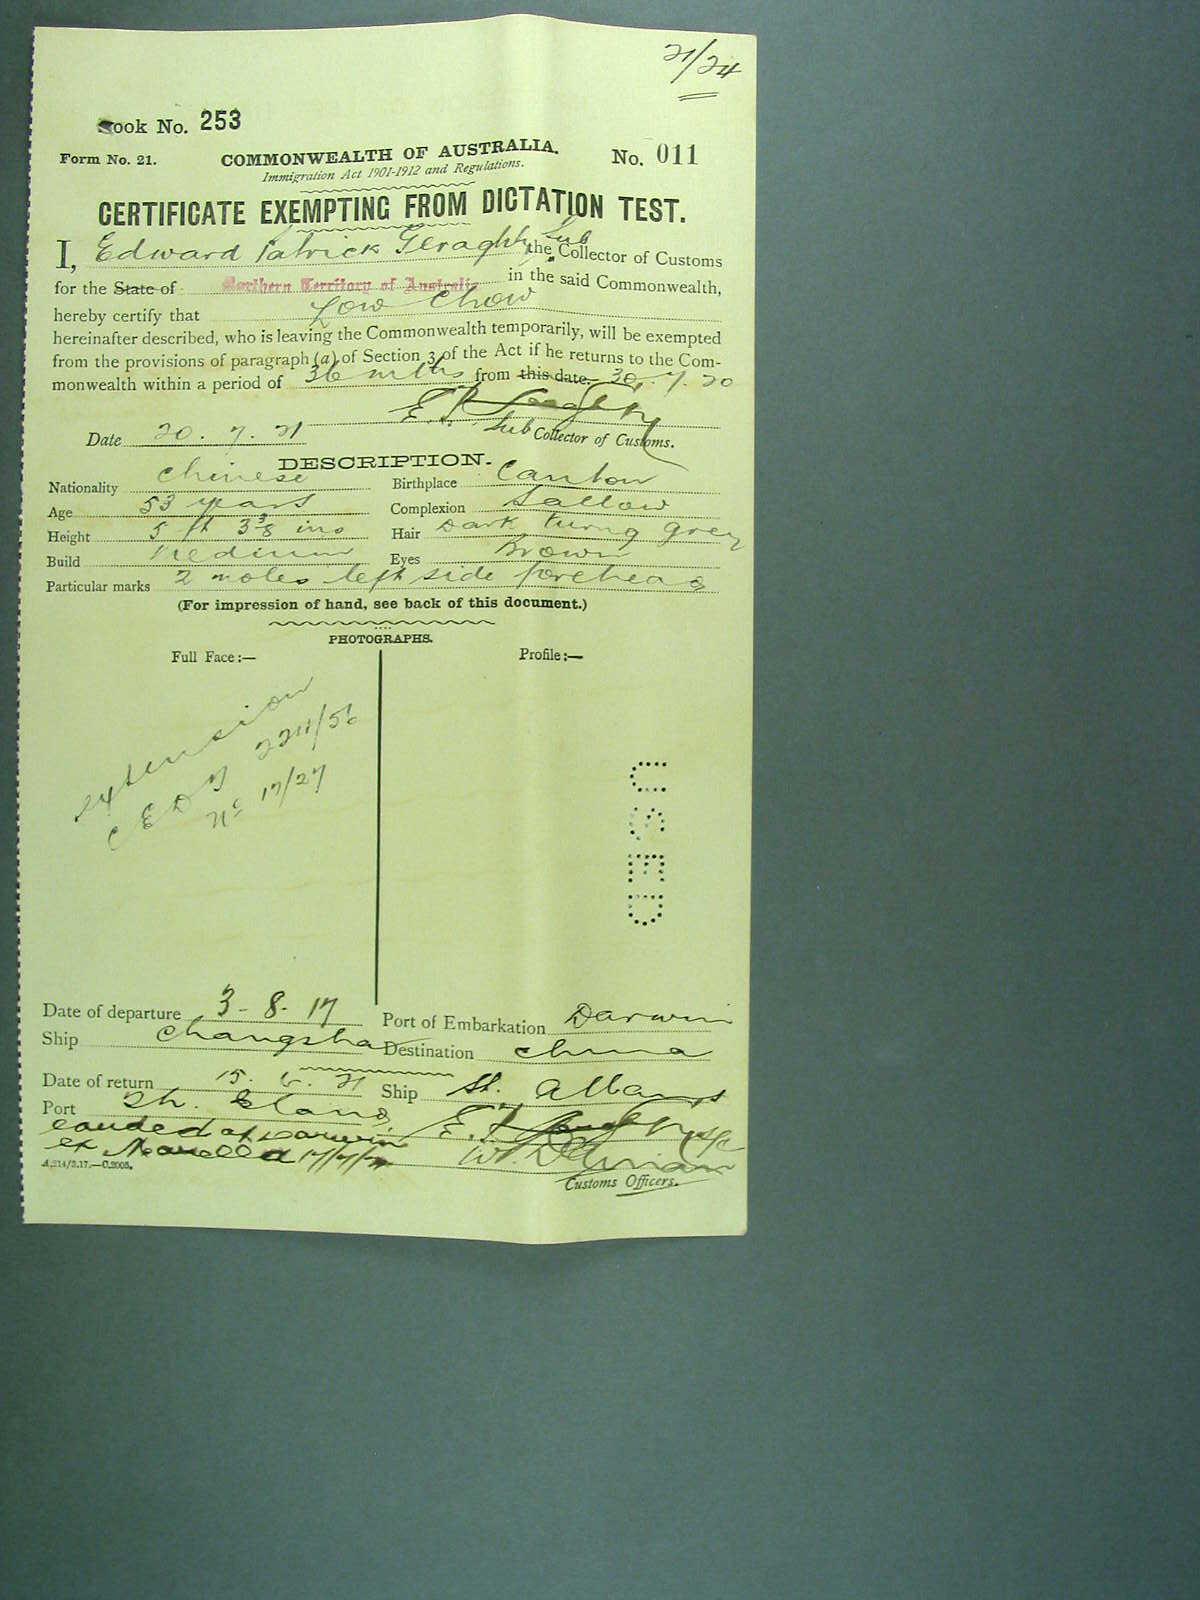 21/24
Book No. 253
Form No. 21. COMMONWEALTH OF AUSTRALIA. No. 011
Immigration Act 1901-1912 and Regulations.
CERTIFICATE EXEMPTING FROM DICTATION TEST.
I, Edward Patrick Geraghty the Sub Collector of Customs
for the State of Northern Territory of Australia in the said Commonwealth,
hereby certify that Low Chow
hereinafter described, who is leaving the Commonwealth temporarily, will be exempted
from the provisions of paragraph (a) of Section 3 of the Act if he returns to the Com-
monwealth within a period of 36 mths from this date 30.7.20
E.P. Geraghty
Date 20.7.21 Sub Collector of Customs.
DESCRIPTION.
Nationality Chinese Birthplace Canton
Age 53 years Complexion Sallow
Height 5 ft 3 3/8 ins Hair Dark turng grey
Build Medium Eyes Brown
Particular marks 2 moles left side forehead
(For impression of hand, see back of this document.)
PHOTOGRAPHS.
Full Face:— Profile:—
extension
CEDT 224/56
No 17/27
USED
Date of departure 3-8-17 Port of Embarkation Darwin
Ship Changsha Destination China
Date of return 15.6.21 Ship St. Albans
Port Th. Island E.P. Geraghty
landed at Darwin
ex Mataram 17/7/21
A.214/3.17.—C.2005. Customs Officers.